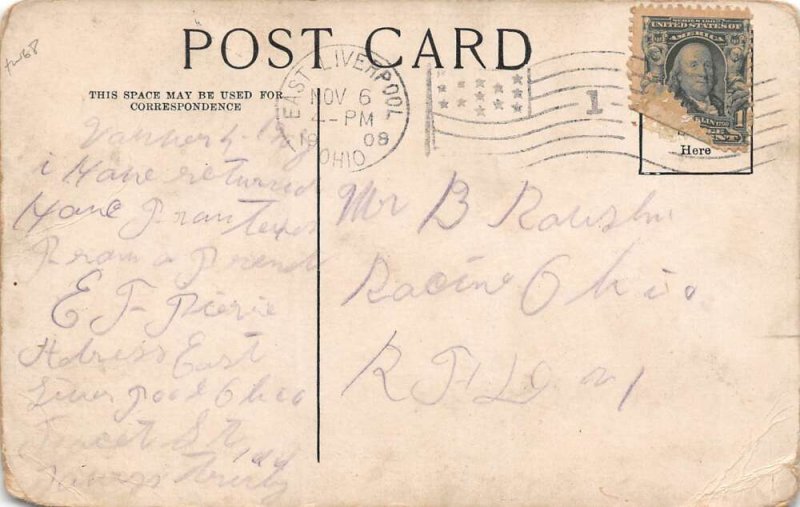 POST CARD
THIS SPACE MAY BE USED FOR
CORRESPONDENCE
EAST LIVERPOOL
NOV 6
4-PM
1908
OHIO
1
SERIES 1902
UNITED STATES OF
AMERICA
Here
i Have returned
Home From
From a Friend
E F Pierie
Adress East
Liverpool Ohio
St
Yours Truly
Mr B Roush
Racine Ohio
R F D n 1